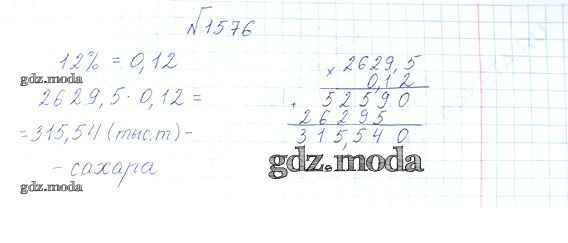 №1576
12% = 0,12
gdz.moda
2629,5 · 0,12 =
= 315,54 (тыс.т) -
- сахара
gdz.moda
× 2629,5
0,12
+ 52590
26295
315,540
gdz.moda